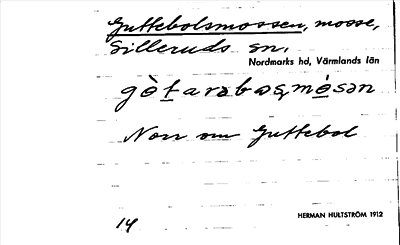 Guttebolsmossen, mosse,
Silleruds sn,
Nordmarks hd, Värmlands län
Norr om Guttebol
14
HERMAN HULTSTRÖM 1912